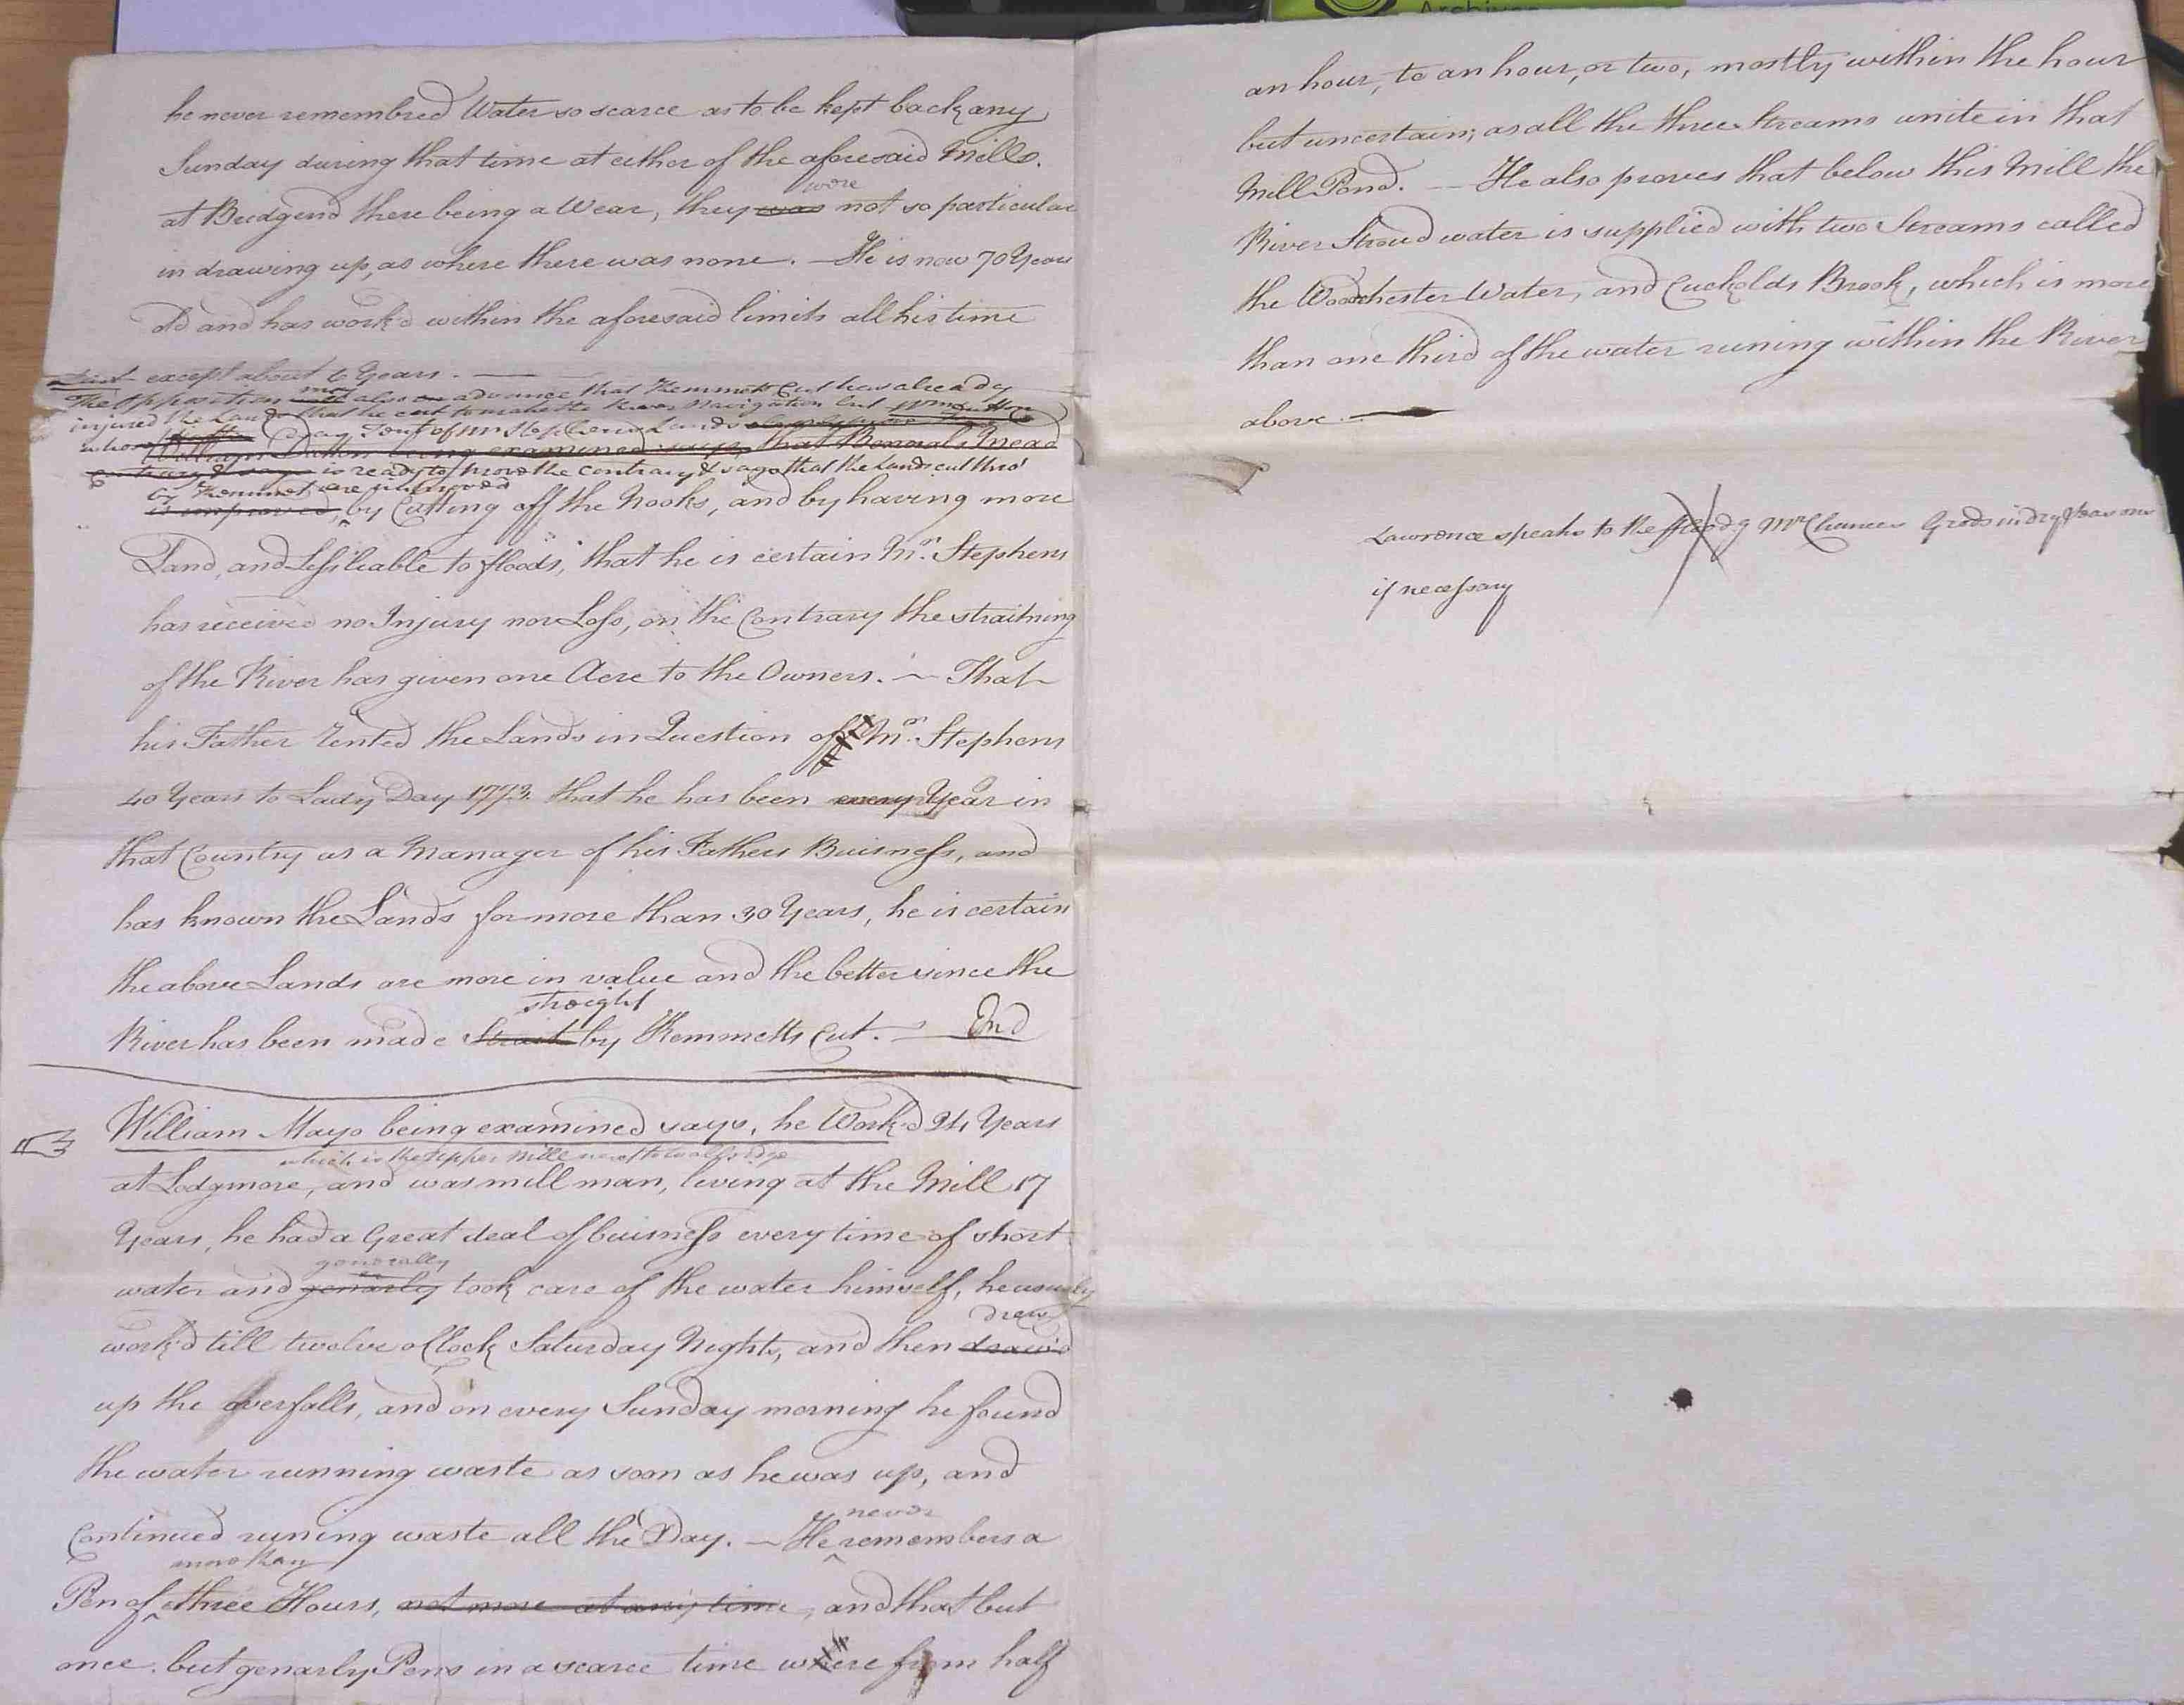 Archives
he never remembred Water so scarce as to be kept back any
Sunday during that time at either of the aforesaid Mills.
were
at Bridgend there being a Wear, they was not so particular
in drawing up, as where there was none. — He is now 70 Years
Old and has work'd within the aforesaid limits all his time
except about 6 Years. —
The Opposition may also advance that Kemmett Cut has already
injured the Land that he cut to make the Navigation but Wm Dutton
who of Mr Stephens Lands
William Dutton being examined says, that Bonnals Mead
contrary & says is ready to prove the contrary & says that the Lands cut thro'
by Kemmet are improved
is improved, by Cutting off the Nooks, and by having more
Land, and Less liable to floods, that he is certain Mr. Stephens
has received no Injury nor Loss, on the Contrary the straitning
of the River has given one Acre to the Owners. — That
his Father rented the Lands in Question of Mr. Stephens
40 Years to Lady Day 1773 that he has been every Year in
that Country as a Manager of his Fathers Buisness, and
has known the Lands for more than 30 Years, he is certain
the above Lands are more in value and the better since the
streight
River has been made Strait by Kemmetts Cut. — End
William Mayo being examined says, he Work'd 24 Years
which is the upper Mill next to Wallbridge
at Lodgmore, and was mill man, living at the Mill 17
Years, he had a Great deal of buisness every time of short
generally
water and genarly took care of the water himself, he usually
drew
work'd till twelve o Clock Saturday Nights, and then draw'd
up the overfalls, and on every Sunday morning he found
the water running waste as soon as he was up, and
never
Continued runing waste all the Day. — He remembers a
more than
Pen of three Hours, not more at any time, and that but
once. but genarly Pens in a scarce time were from half
an hour, to an hour, or two, mostly within the hour
but uncertain; as all the three Streams unite in that
Mill Pond. — He also proves that below this Mill the
River Stroud water is supplied with two Streams called
the Woodchester Water, and Cuckolds Brook, which is more
than one third of the water runing within the River
above —
Lawrence speaks to the Mr Chances Grods in dry Seasons
if necessary